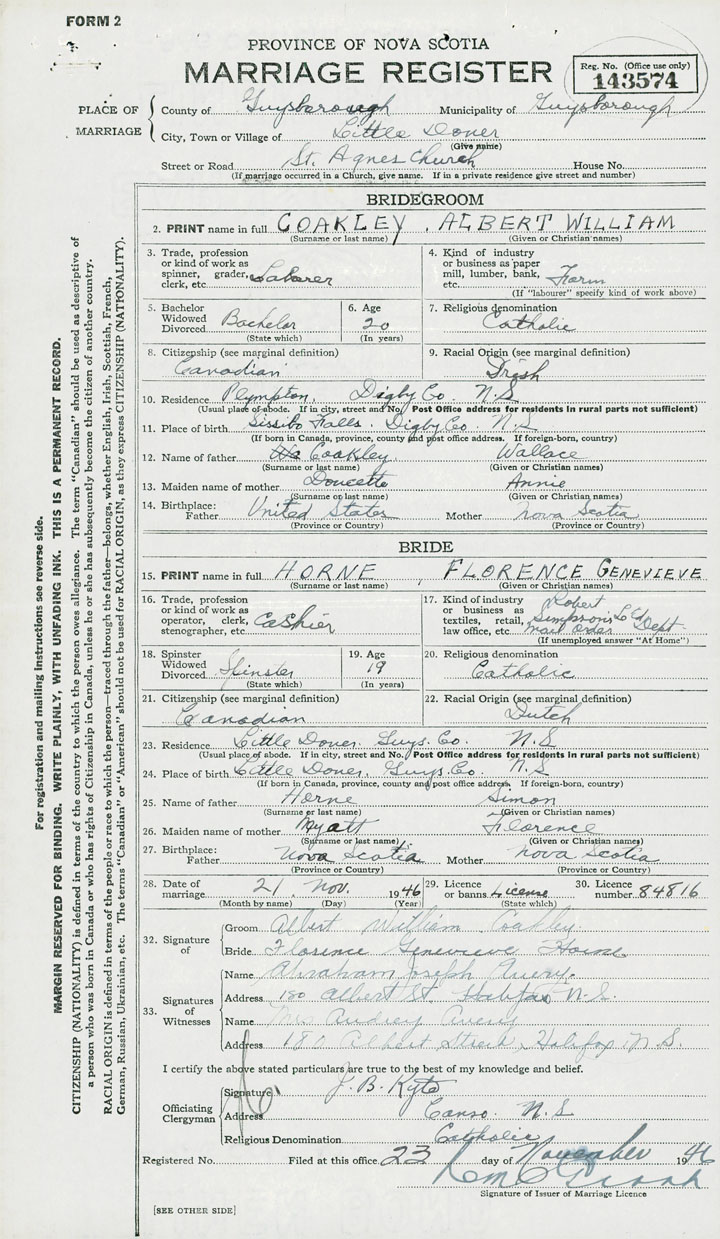 FORM 2
PROVINCE OF NOVA SCOTIA
MARRIAGE REGISTER
Reg. No. (Office use only)
143574
PLACE OF MARRIAGE
County of Guysborough Municipality of Guysborough
City, Town or Village of Little Dover
(Give name)
Street or Road St. Agnes Church House No.
(If marriage occurred in a Church, give name. If in a private residence give street and number)
BRIDEGROOM
2. PRINT name in full COAKLEY, ALBERT WILLIAM
(Surname or last name) (Given or Christian names)
3. Trade, profession or kind of work as spinner, grader, clerk, etc. Laborer
4. Kind of industry or business as paper mill, lumber, bank, etc. Farm
(If "labourer" specify kind of work above)
5. Bachelor Widowed Divorced Bachelor
(State which)
6. Age 20
(In years)
7. Religious denomination Catholic
8. Citizenship (see marginal definition) Canadian
9. Racial Origin (see marginal definition) Irish
10. Residence Plympton, Digby Co. N.S
(Usual place of abode. If in city, street and No. Post Office address for residents in rural parts not sufficient)
11. Place of birth Sissibo Falls. Digby Co. N.S
(If born in Canada, province, county and post office address. If foreign-born, country)
12. Name of father Coakley Wallace
(Surname or last name) (Given or Christian names)
13. Maiden name of mother Doucette Annie
(Surname or last name) (Given or Christian names)
14. Birthplace: Father United States Mother Nova Scotia
(Province or Country) (Province or Country)
BRIDE
15. PRINT name in full HORNE FLORENCE GENEVIEVE
(Surname or last name) (Given or Christian names)
16. Trade, profession or kind of work as operator, clerk, stenographer, etc. Cashier
17. Kind of industry or business as textiles, retail, law office, etc. Robert Simpsons Ltd mail order Dept
(If unemployed answer "At Home")
18. Spinster Widowed Divorced Spinster
(State which)
19. Age 19
(In years)
20. Religious denomination Catholic
21. Citizenship (see marginal definition) Canadian
22. Racial Origin (see marginal definition) Dutch
23. Residence Little Dover Guys. Co. N.S
(Usual place of abode. If in city, street and No. Post Office address for residents in rural parts not sufficient)
24. Place of birth Little Dover, Guys. Co. N.S
(If born in Canada, province, county and post office address. If foreign-born, country)
25. Name of father Horne Simon
(Surname or last name) (Given or Christian names)
26. Maiden name of mother Myatt Florence
(Surname or last name) (Given or Christian names)
27. Birthplace: Father Nova Scotia Mother Nova Scotia
(Province or Country) (Province or Country)
28. Date of marriage 21 Nov. 1946
(Month by name) (Day) (Year)
29. Licence or banns License
(State which)
30. Licence number 84816
32. Signature of
Groom Albert William Coakley
Bride Florence Genevieve Horne
33. Signatures of Witnesses
Name Abraham Joseph Avery.
Address 180 Albert St. Halifax N.S.
Name Mrs Audrey Avery
Address 180 Albert Street, Halifax N.S.
I certify the above stated particulars are true to the best of my knowledge and belief.
Officiating Clergyman
Signature J. B. Kyte
Address Canso N.S
Religious Denomination Catholic
Registered No. Filed at this office 23 day of November 1946
Signature of Issuer of Marriage Licence
[SEE OTHER SIDE]
For registration and mailing instructions see reverse side.
MARGIN RESERVED FOR BINDING. WRITE PLAINLY, WITH UNFADING INK. THIS IS A PERMANENT RECORD.
CITIZENSHIP (NATIONALITY) is defined in terms of the country to which the person owes allegiance. The term "Canadian" should be used as descriptive of
a person who was born in Canada or who has rights of Citizenship in Canada, unless he or she has subsequently become the citizen of another country.
RACIAL ORIGIN is defined in terms of the people or race to which the person—traced through the father—belongs, whether English, Irish, Scottish, French,
German, Russian, Ukrainian, etc. The terms "Canadian" or "American" should not be used for RACIAL ORIGIN, as they express CITIZENSHIP (NATIONALITY).